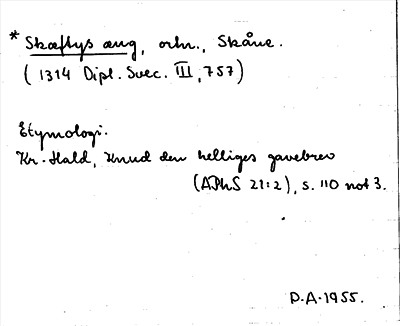 * Skæftys æng, ortn., Skåne.
(1314 Dipl. Svec. III, 757)
Etymologi.
Kr. Hald, Knud den helliges gavebrev
(APhS 21:2), s. 110 not 3.
P.A. 1955.